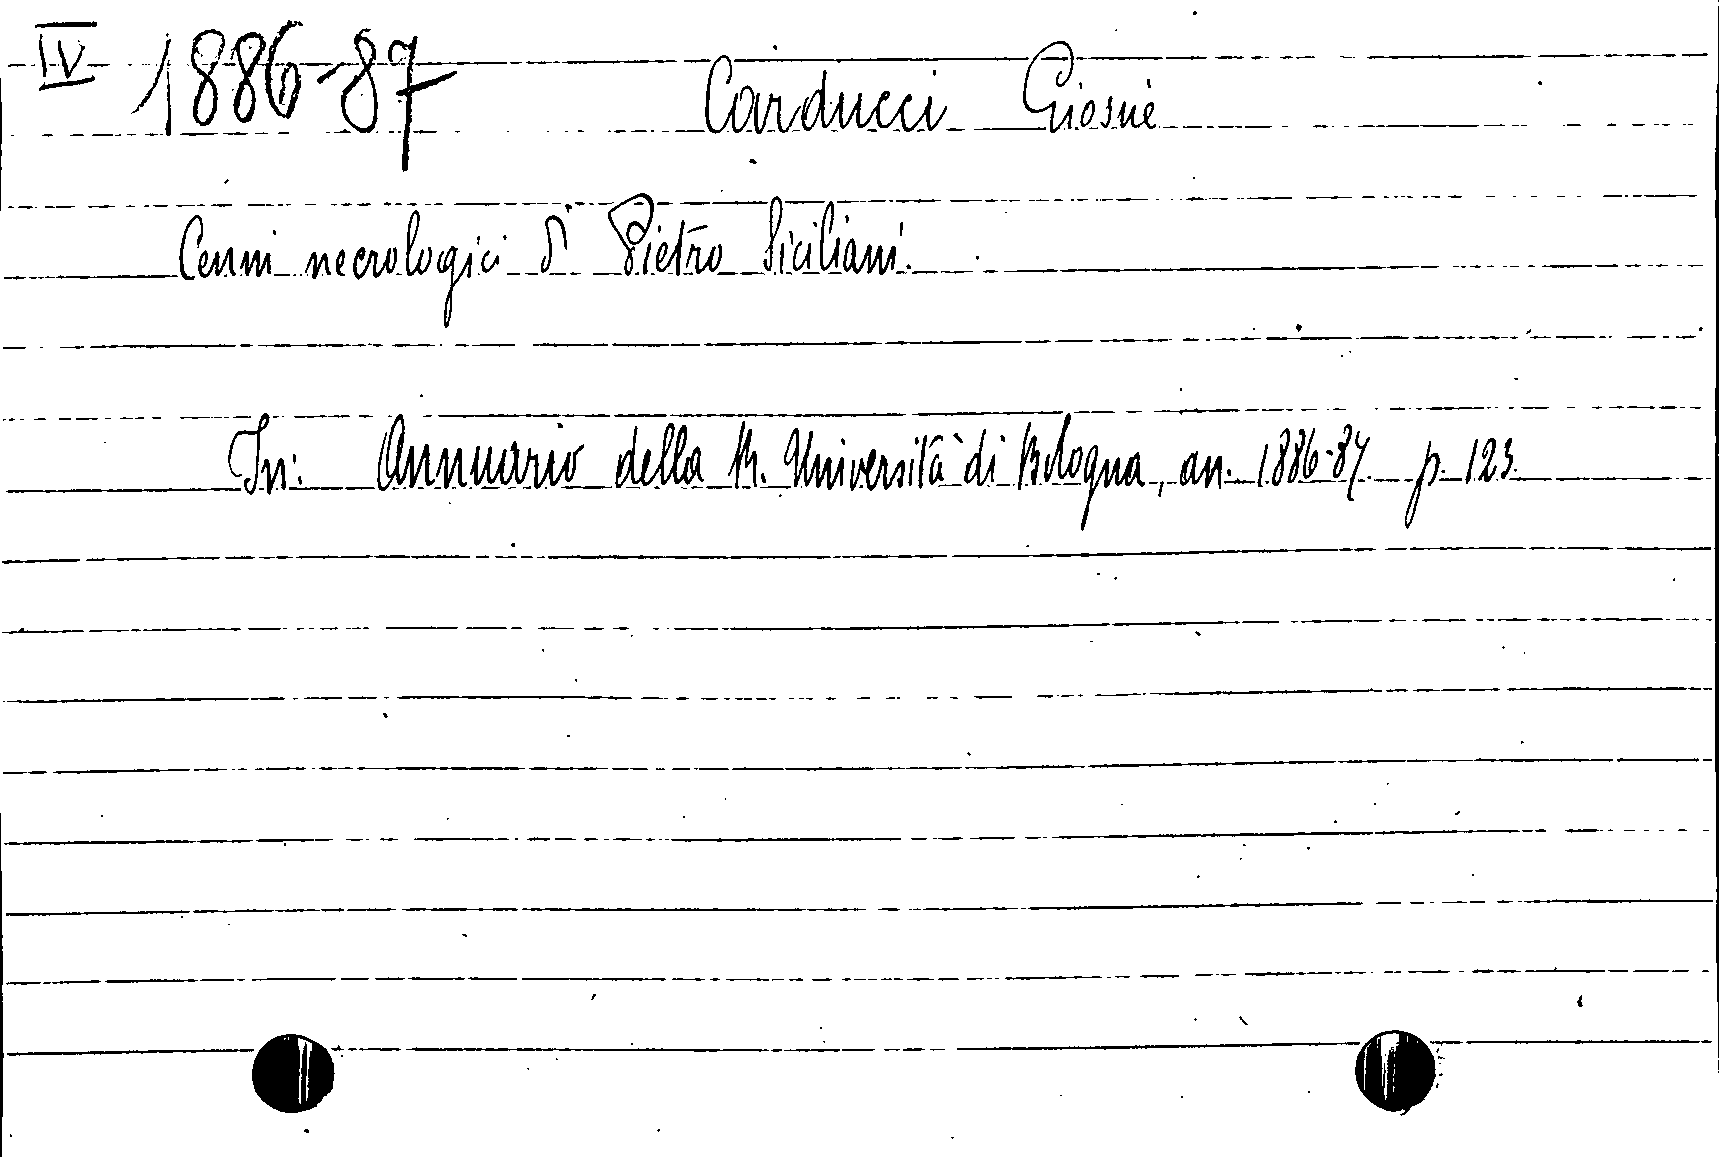 IV 1886-87 Carducci Giosuè
Cenni necrologici di Pietro Siciliani.
In: Annuario della R. Università di Bologna, an. 1886-87 p. 123.